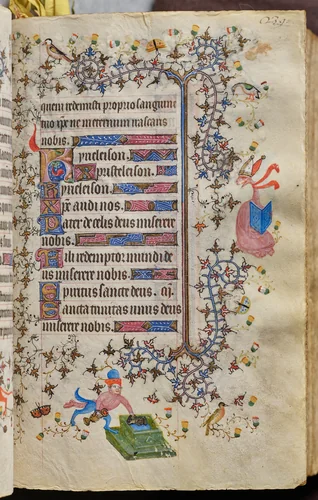 239
quem redemisti proprio sanguine
tuo xpe ne in eternum irascaris
nobis.
Kyrieleison.
Kyrieleison.
Xpe audi nos.
Pater de celis deus miserere
nobis.
Fili redemptor mundi de
us miserere nobis.
Spiritus sancte deus.
Sancta trinitas unus deus
miserere nobis.